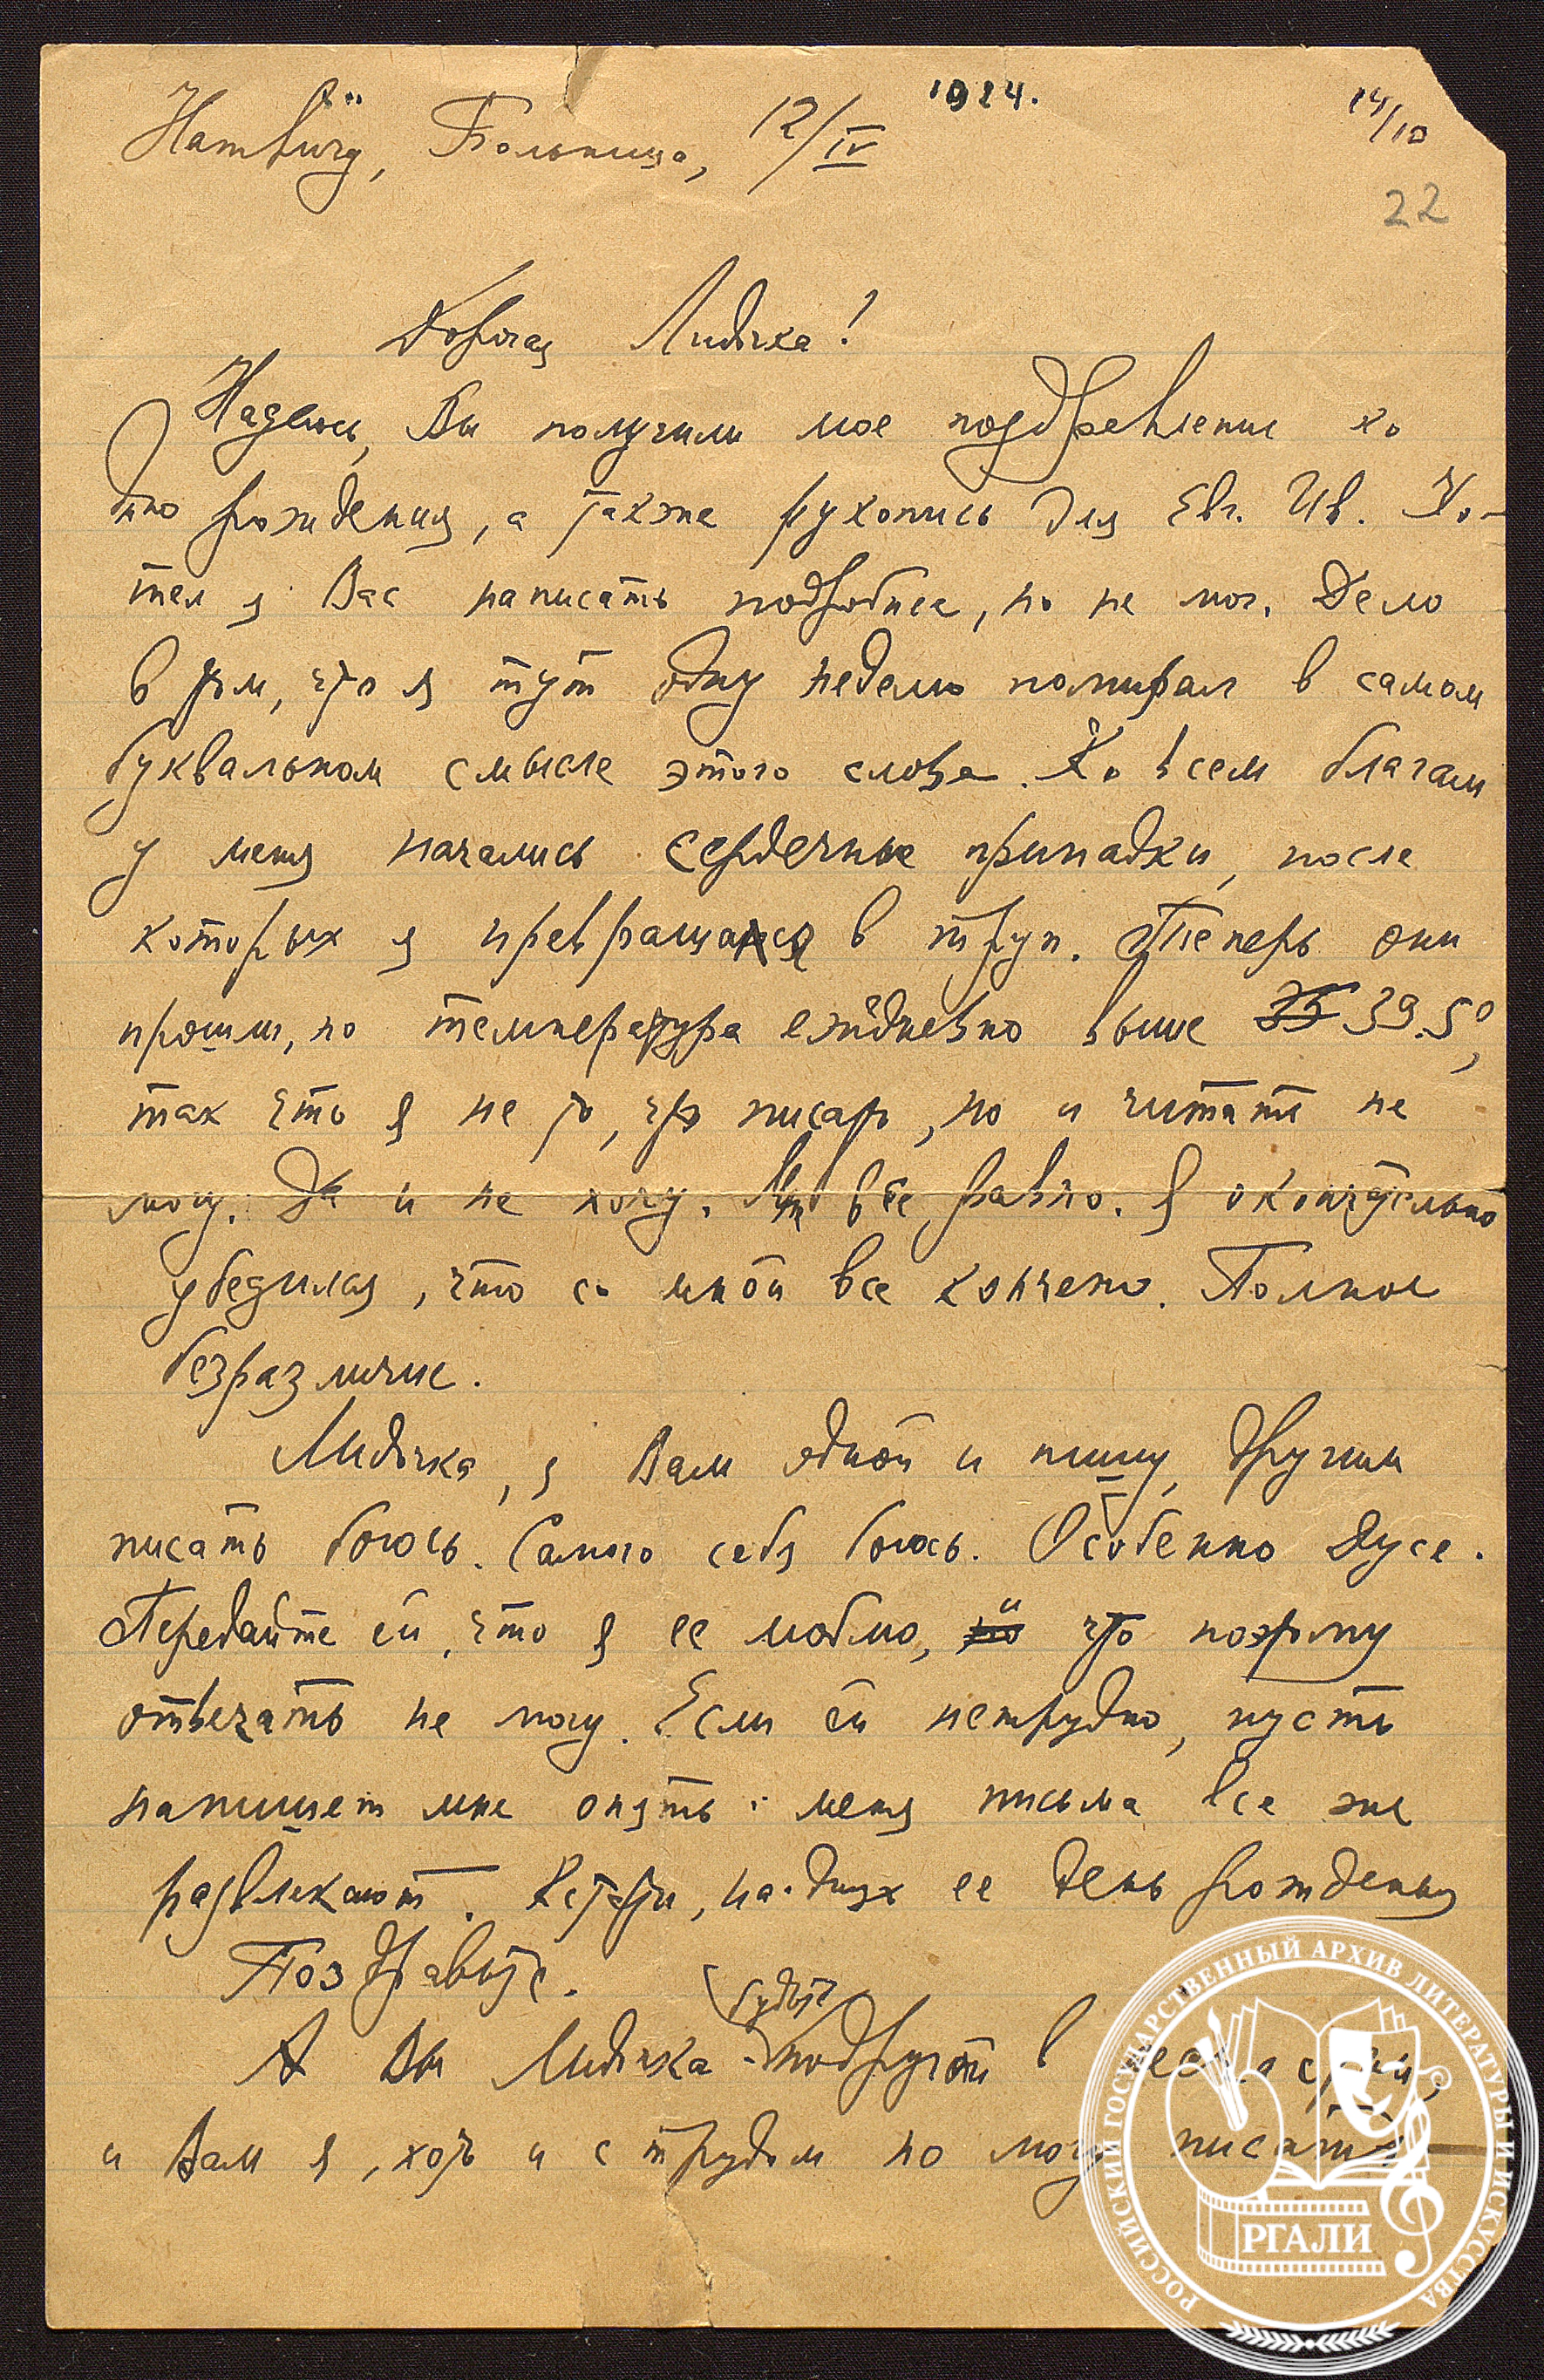 1924.
14/10
Hamburg, Больница, 12/IV
22
Дорогая Лидочка!
Надеюсь, Вы получили мое поздравление ко
дню рождения, а также рукопись для Евг. Ив. Хо-
тел я Вас написать подробнее, но не мог. Дело
в том, что я тут одну неделю помирал в самом
буквальном смысле этого слова. Ко всем благам
у меня начались сердечные припадки, после
которых я превращался в труп. Теперь они
прошли, но температура ежедневно выше 39.5°,
так что я не то, что писать, но и читать не
могу. Да и не хочу. Мне все равно. Я окончательно
убедился, что со мной все кончено. Полное
безразличие.
Лидочка, я Вам одной и пишу, другим
писать боюсь. Самого себя боюсь. Особенно Дусе.
Передайте ей, что я ее люблю, и что поэтому
отвечать не могу. Если ей нетрудно, пусть
напишет мне опять: меня письма все же
развлекают. Кстати, на-днях ее день рожденья
Поздравьте.
будьте
А Вы Лидочка - подругой в
и Вам я, хоть и с трудом но могу писать
РОССИЙСКИЙ ГОСУДАРСТВЕННЫЙ АРХИВ ЛИТЕРАТУРЫ И ИСКУССТВА
РГАЛИ